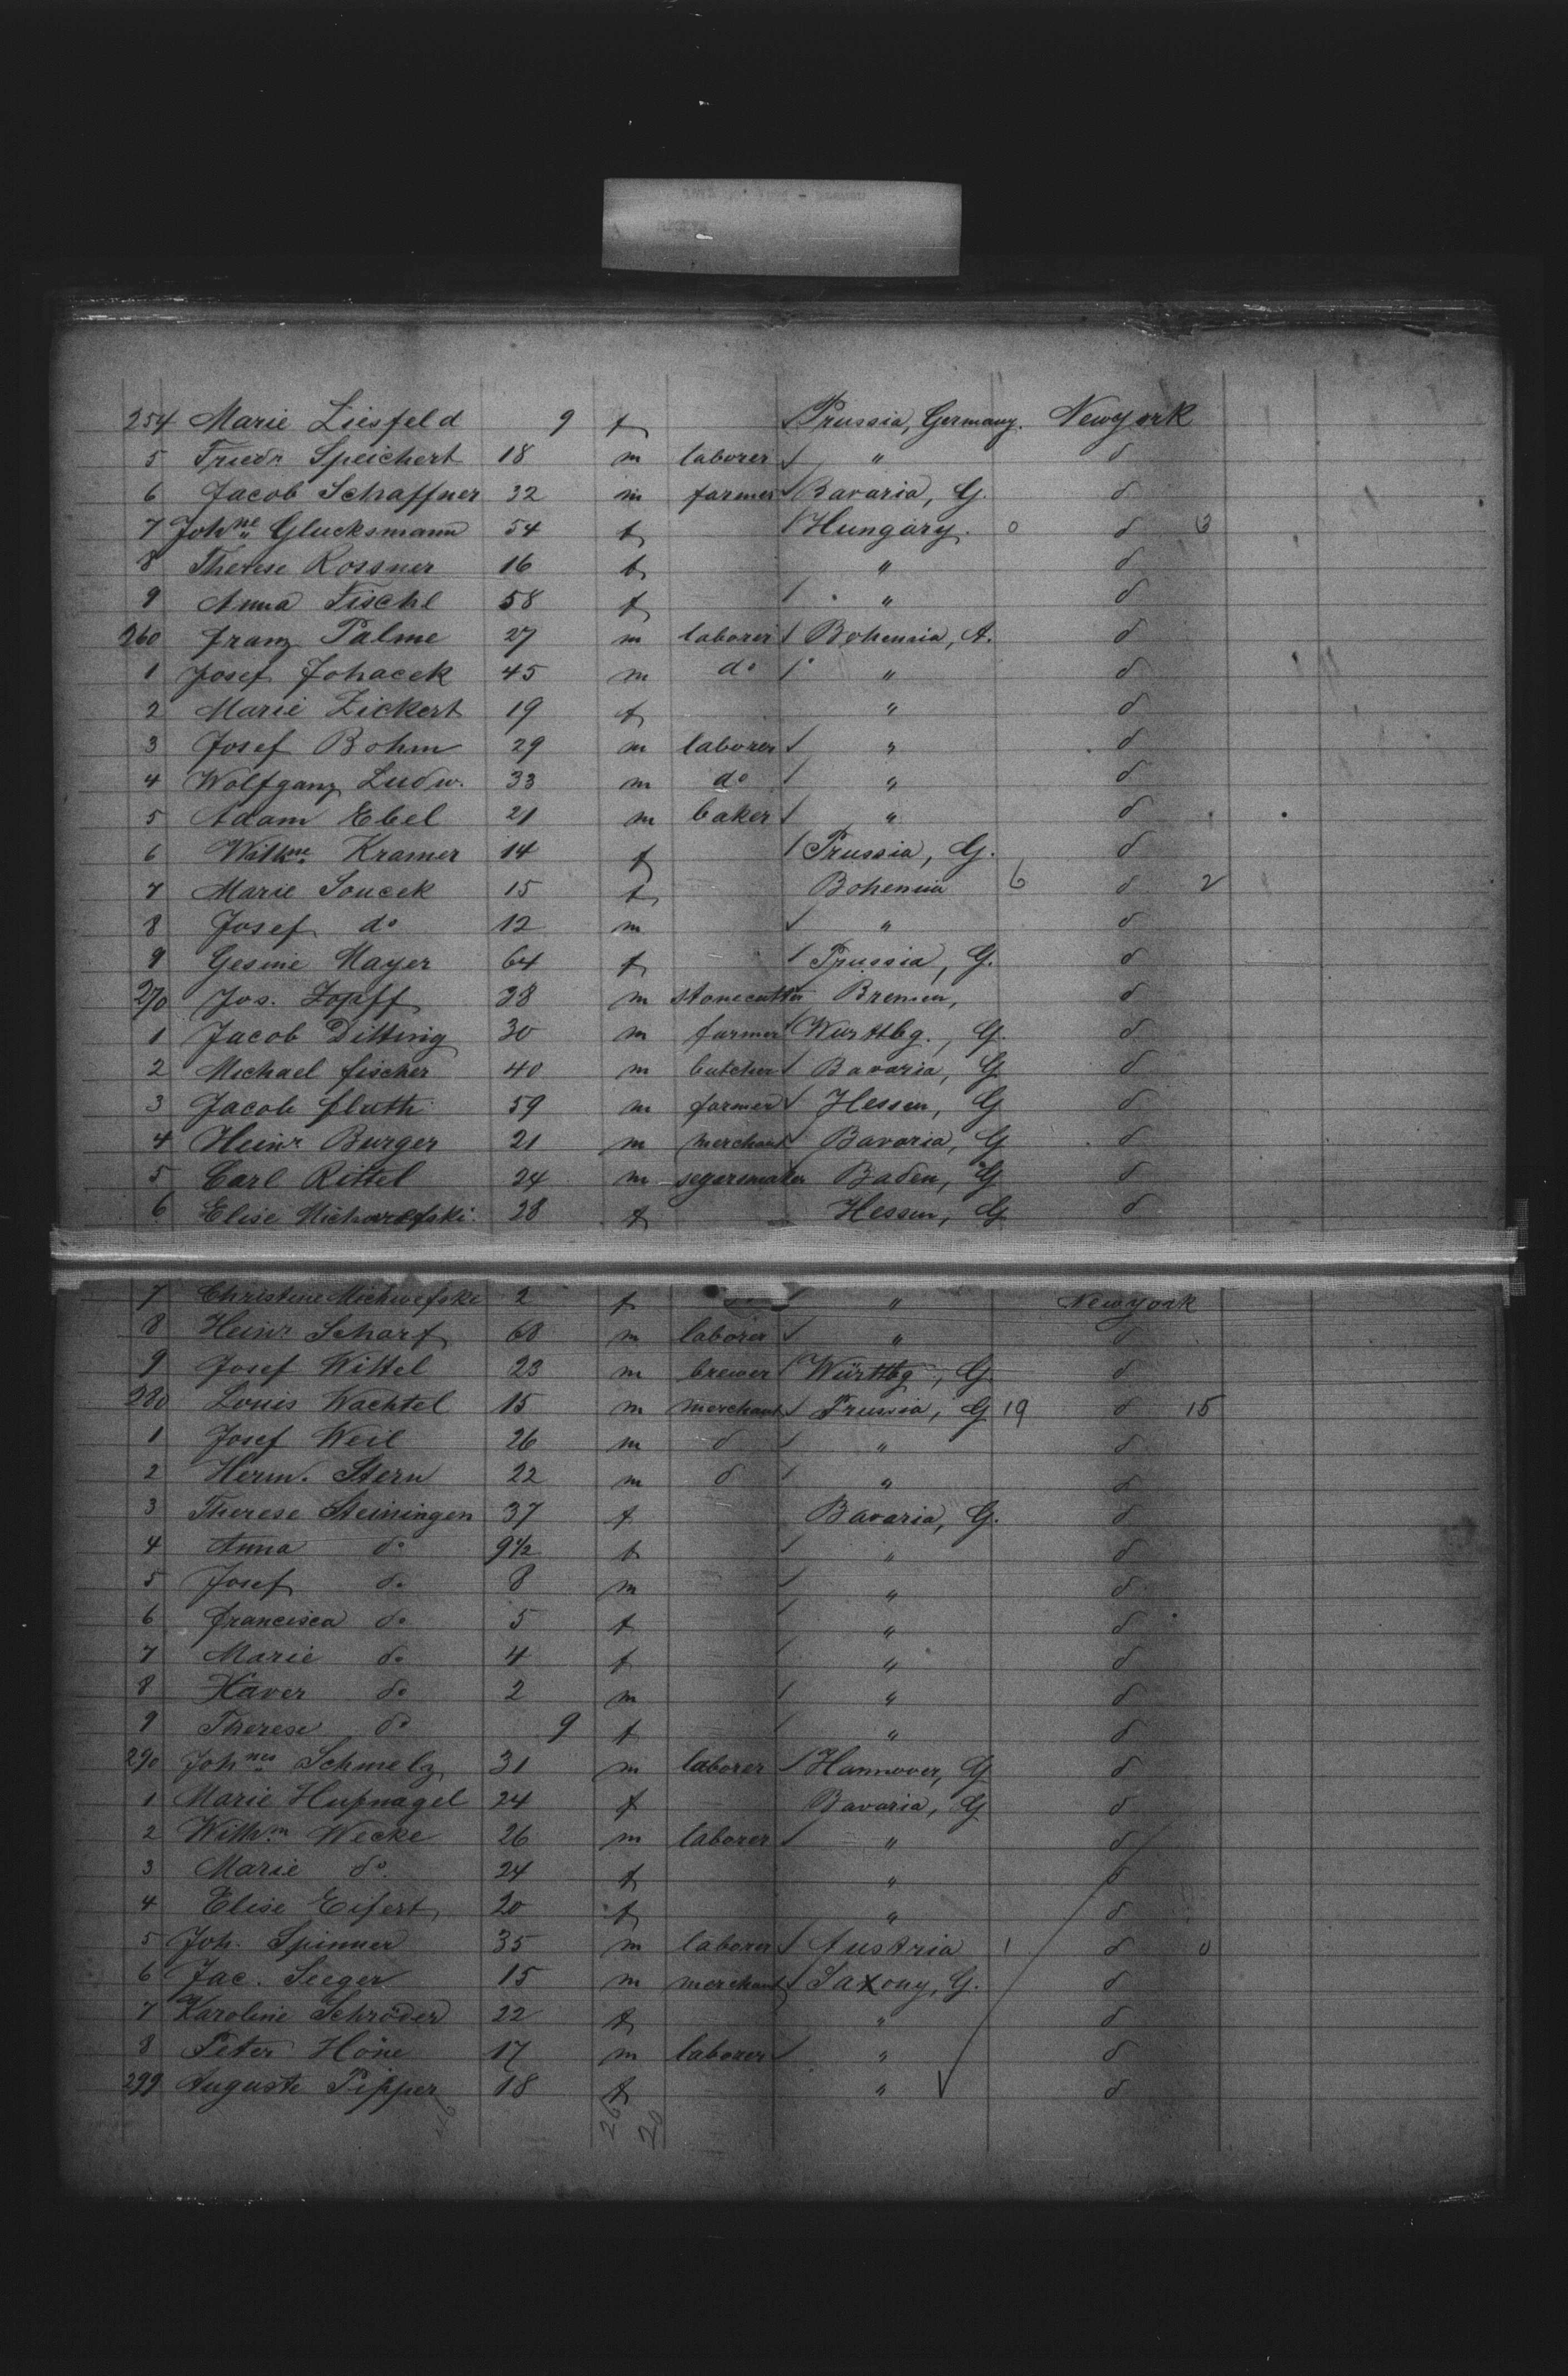 254 Marie Liesfeld 9 f Prussia, Germany. Newyork
5 Friedr Speichert 18 m laborer " d
6 Jacob Schaffner 32 m farmer Bavaria, G. d
7 Joh.ne Glucksmann 54 f Hungary. 0 d 3
8 Therese Rossner 16 f " d
9 Anna Fischl 58 f " d
260 Franz Palme 27 m laborer Bohemia, A. d
1 Josef Johacek 45 m do " d
2 Marie Zickert 19 f " d
3 Josef Bohm 29 m laborer " d
4 Wolfgang Ludw. 33 m do " d
5 Adam Ebel 21 m baker " d
6 Wilh.ne Kramer 14 f Prussia, G. d
7 Marie Soucek 15 f Bohemia 6 d 2
8 Josef do 12 m " d
9 Gesine Mayer 64 f Prussia, G. d
270 Jos. Zopff 38 m stonecutter Bremen, d
1 Jacob Ditting 30 m farmer Wurttbg., G. d
2 Michael Fischer 40 m butcher Bavaria, G d
3 Jacob Fluth 59 m farmer Hessen, G d
4 Heinr Burger 21 m merchant Bavaria, G d
5 Carl Rittel 24 m segarmaker Baden, G d
6 Elise 28 f Hessen, G d
7 Christine 2 f " Newyork
8 Heinr Scharf 68 m laborer " d
9 Josef Wittel 23 m brewer Württbg, G. d
280 Louis Wachtel 15 m merchant Prussia, G 19 d 15
1 Josef Weil 26 m d " d
2 Herm. Stern 22 m d " d
3 Therese Steiningen 37 f Bavaria, G. d
4 Anna do 9½ f " d
5 Josef do 8 m " d
6 Francisca do 5 f " d
7 Marie do 4 f " d
8 Xaver do 2 m " d
9 Therese do 9 f " d
290 Joh.nes Schmelz 31 m laborer Hannover, G d
1 Marie Hufnagel 24 f Bavaria, G d
2 Wilh.m Wecke 26 m laborer " d
3 Marie do. 24 f " d
4 Elise Eifert 20 f " d
5 Joh. Spinner 35 m laborer Austria 1 d 0
6 Jac. Seeger 15 m merchant Saxony, G. d
7 Karoline Schröder 22 f " d
8 Peter Höne 17 m laborer " d
299 Auguste Pipper 18 f " d
46 26 20